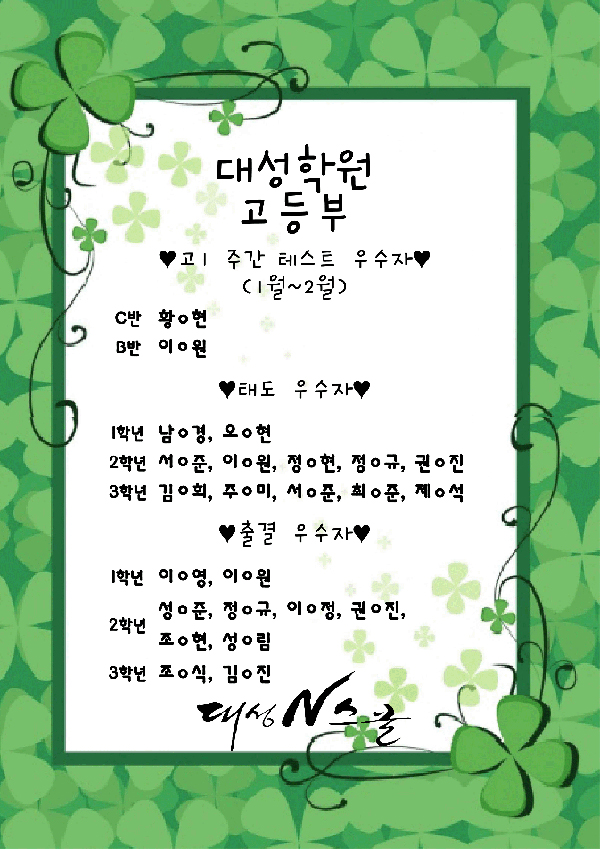 대성학원
고등부
♥고1 주간 테스트 우수자♥
(1월~2월)
C반 황o현
B반 이o원
♥태도 우수자♥
1학년 남o경, 오o현
2학년 서o준, 이o원, 정o현, 정o규, 권o진
3학년 김o희, 주o미, 서o준, 최o준, 제o석
♥출결 우수자♥
1학년 이o영, 이o원
2학년 성o준, 정o규, 이o정, 권o진,
조o현, 성o림
3학년 조o식, 김o진
대성N스쿨